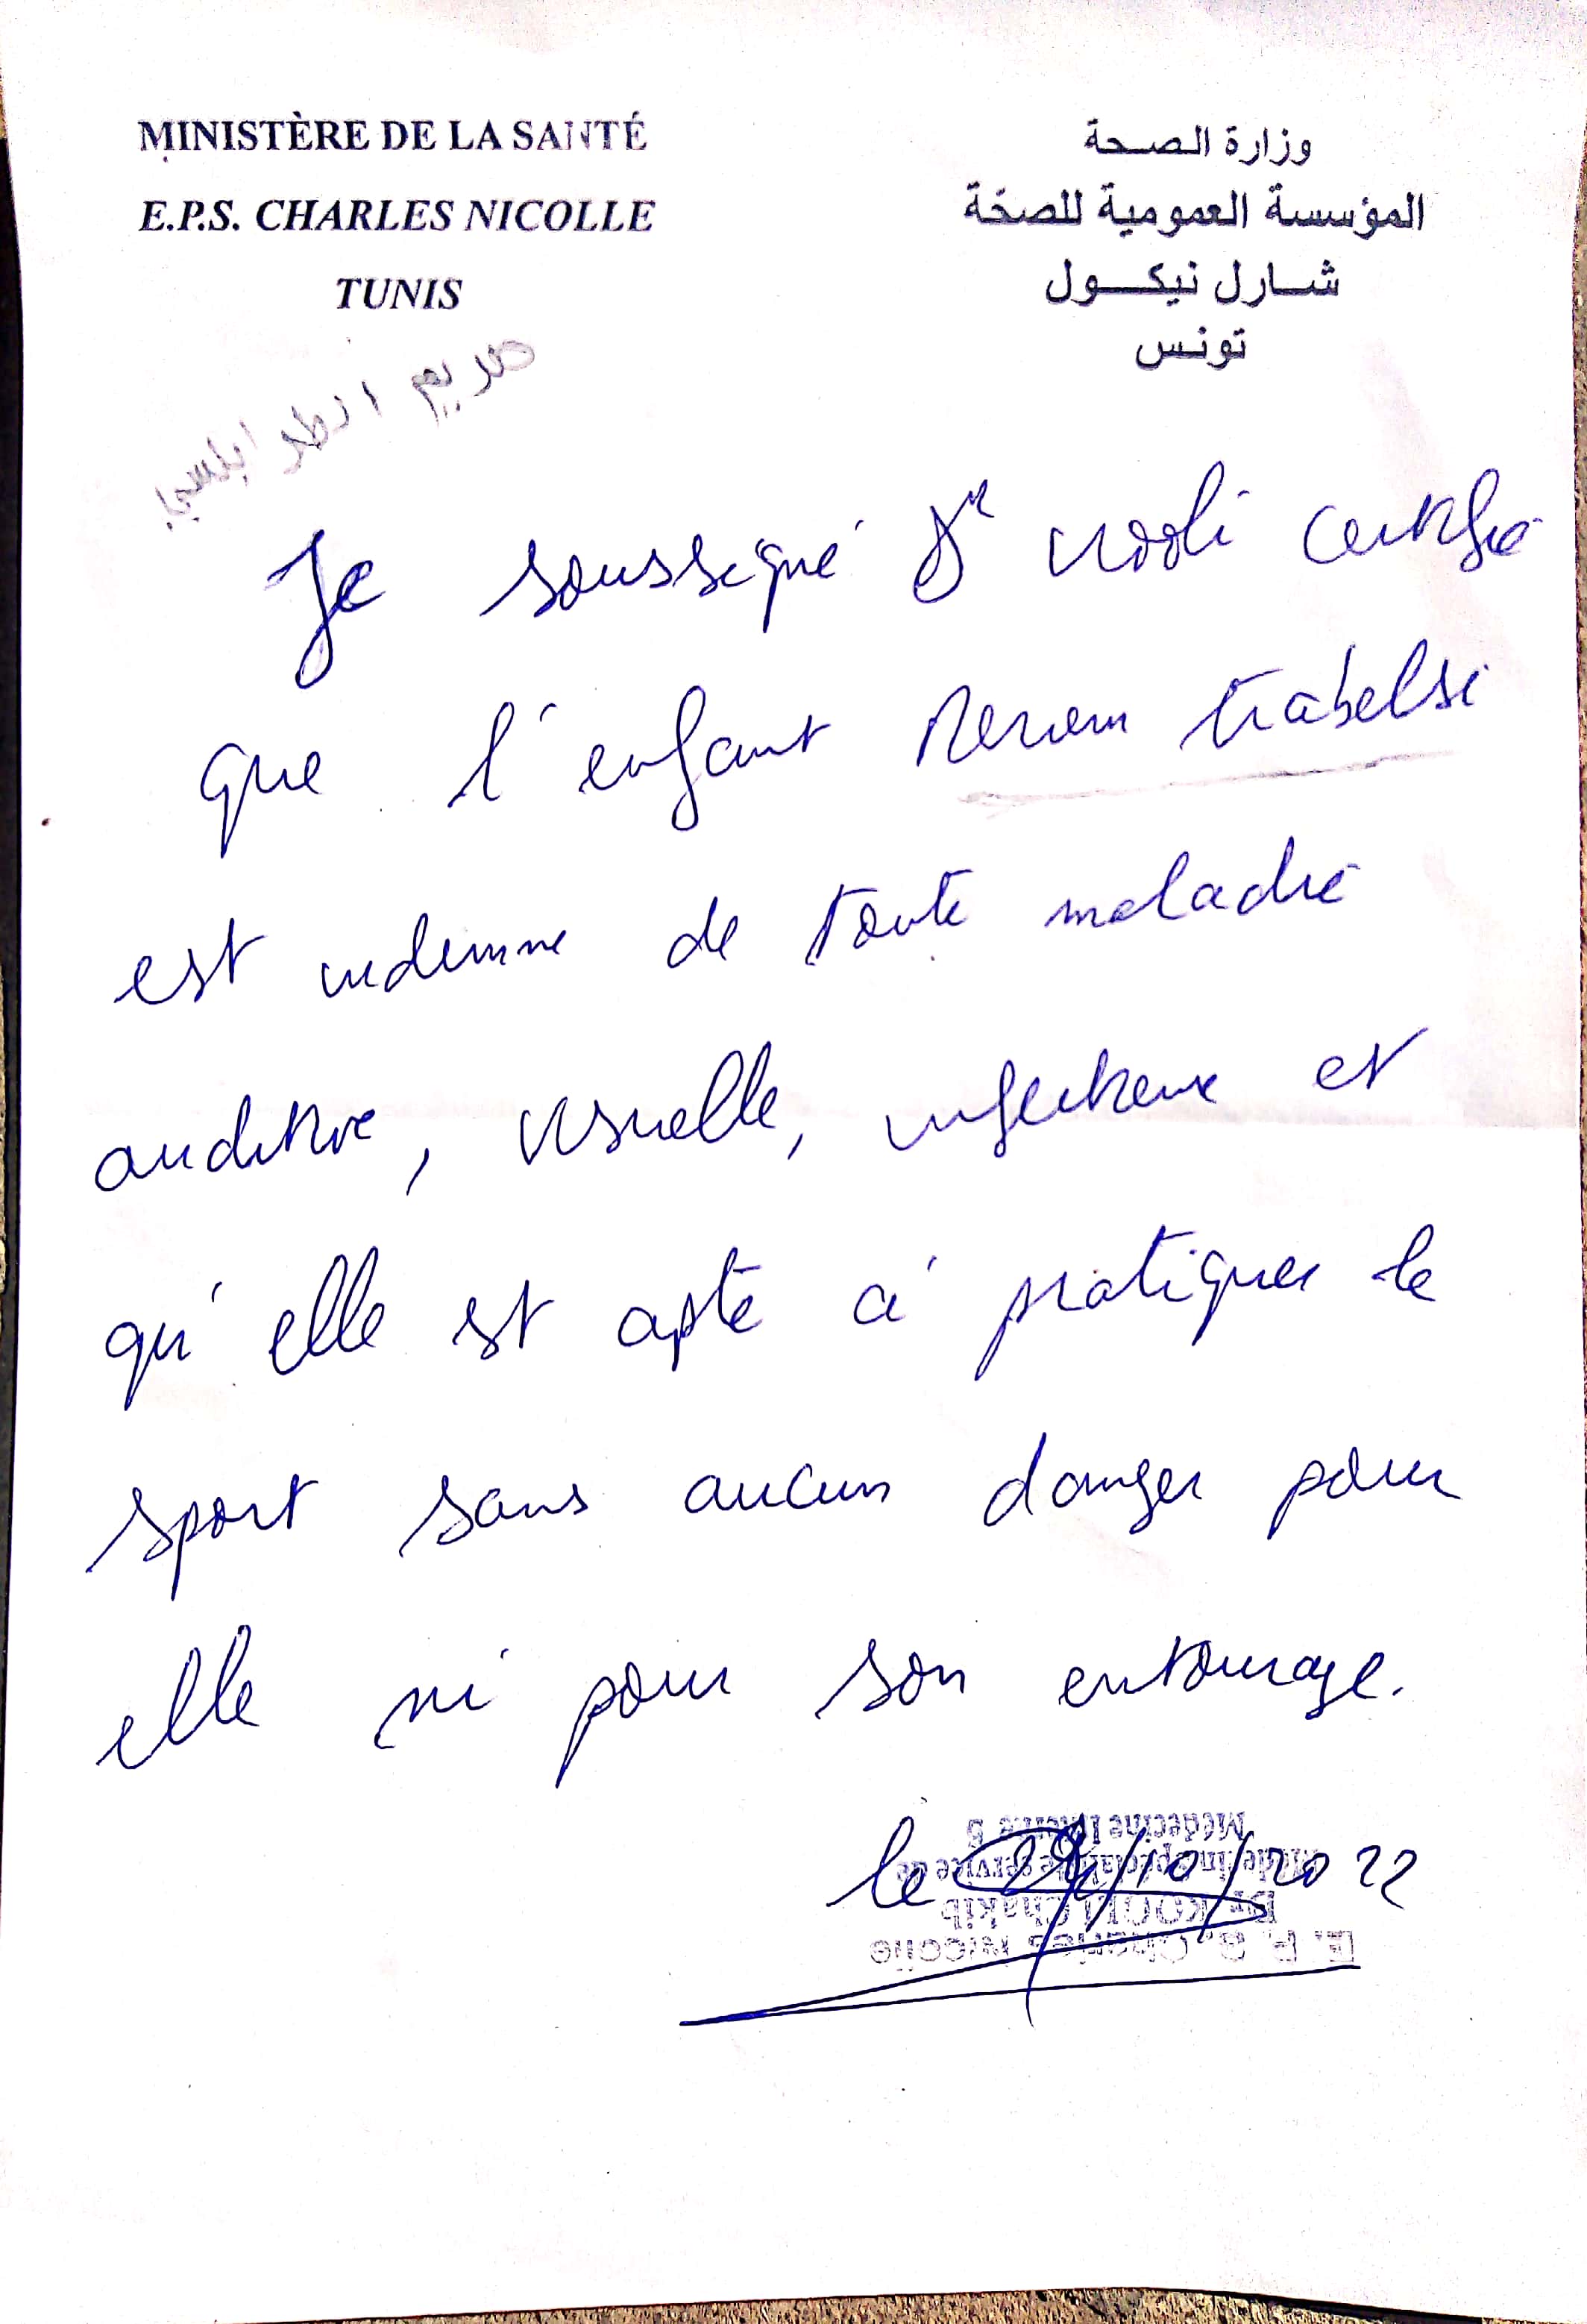 MINISTÈRE DE LA SANTÉ
E.P.S. CHARLES NICOLLE
TUNIS
وزارة الصحة
المؤسسة العمومية للصحة
شارل نيكول
تونس
مريم الطرابلسي
Je soussigné Dr certifie
que l'enfant Meriem trabelsi
est indemne de toute maladie
auditive, visuelle, infectieuse et
qu'elle est apte à pratiquer le
sport sans aucun danger pour
elle ni pour son entourage.
le /10/2022
E. P. S. Charles Nicolle
Dr KOOLI Chakib
Médecine